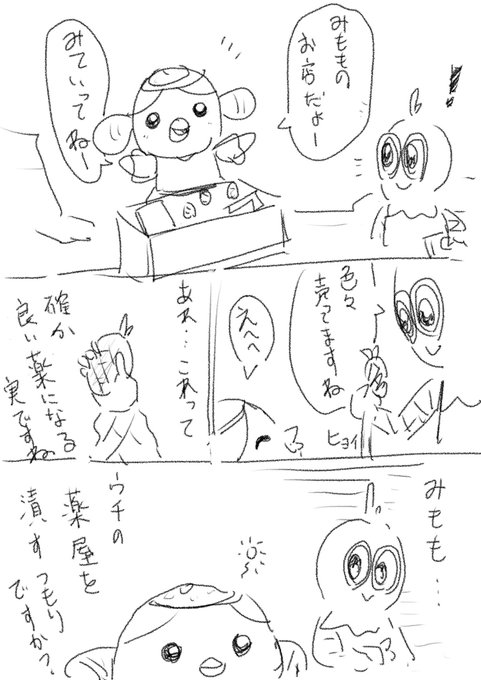 みももの
お店だよー
みていってねー
色々
売ってますね
えへへ
ヒョイ
あれ…これって
確か
良い薬になる
実ですね
みもも…
ウチの
薬屋を
潰すつもり
ですか?